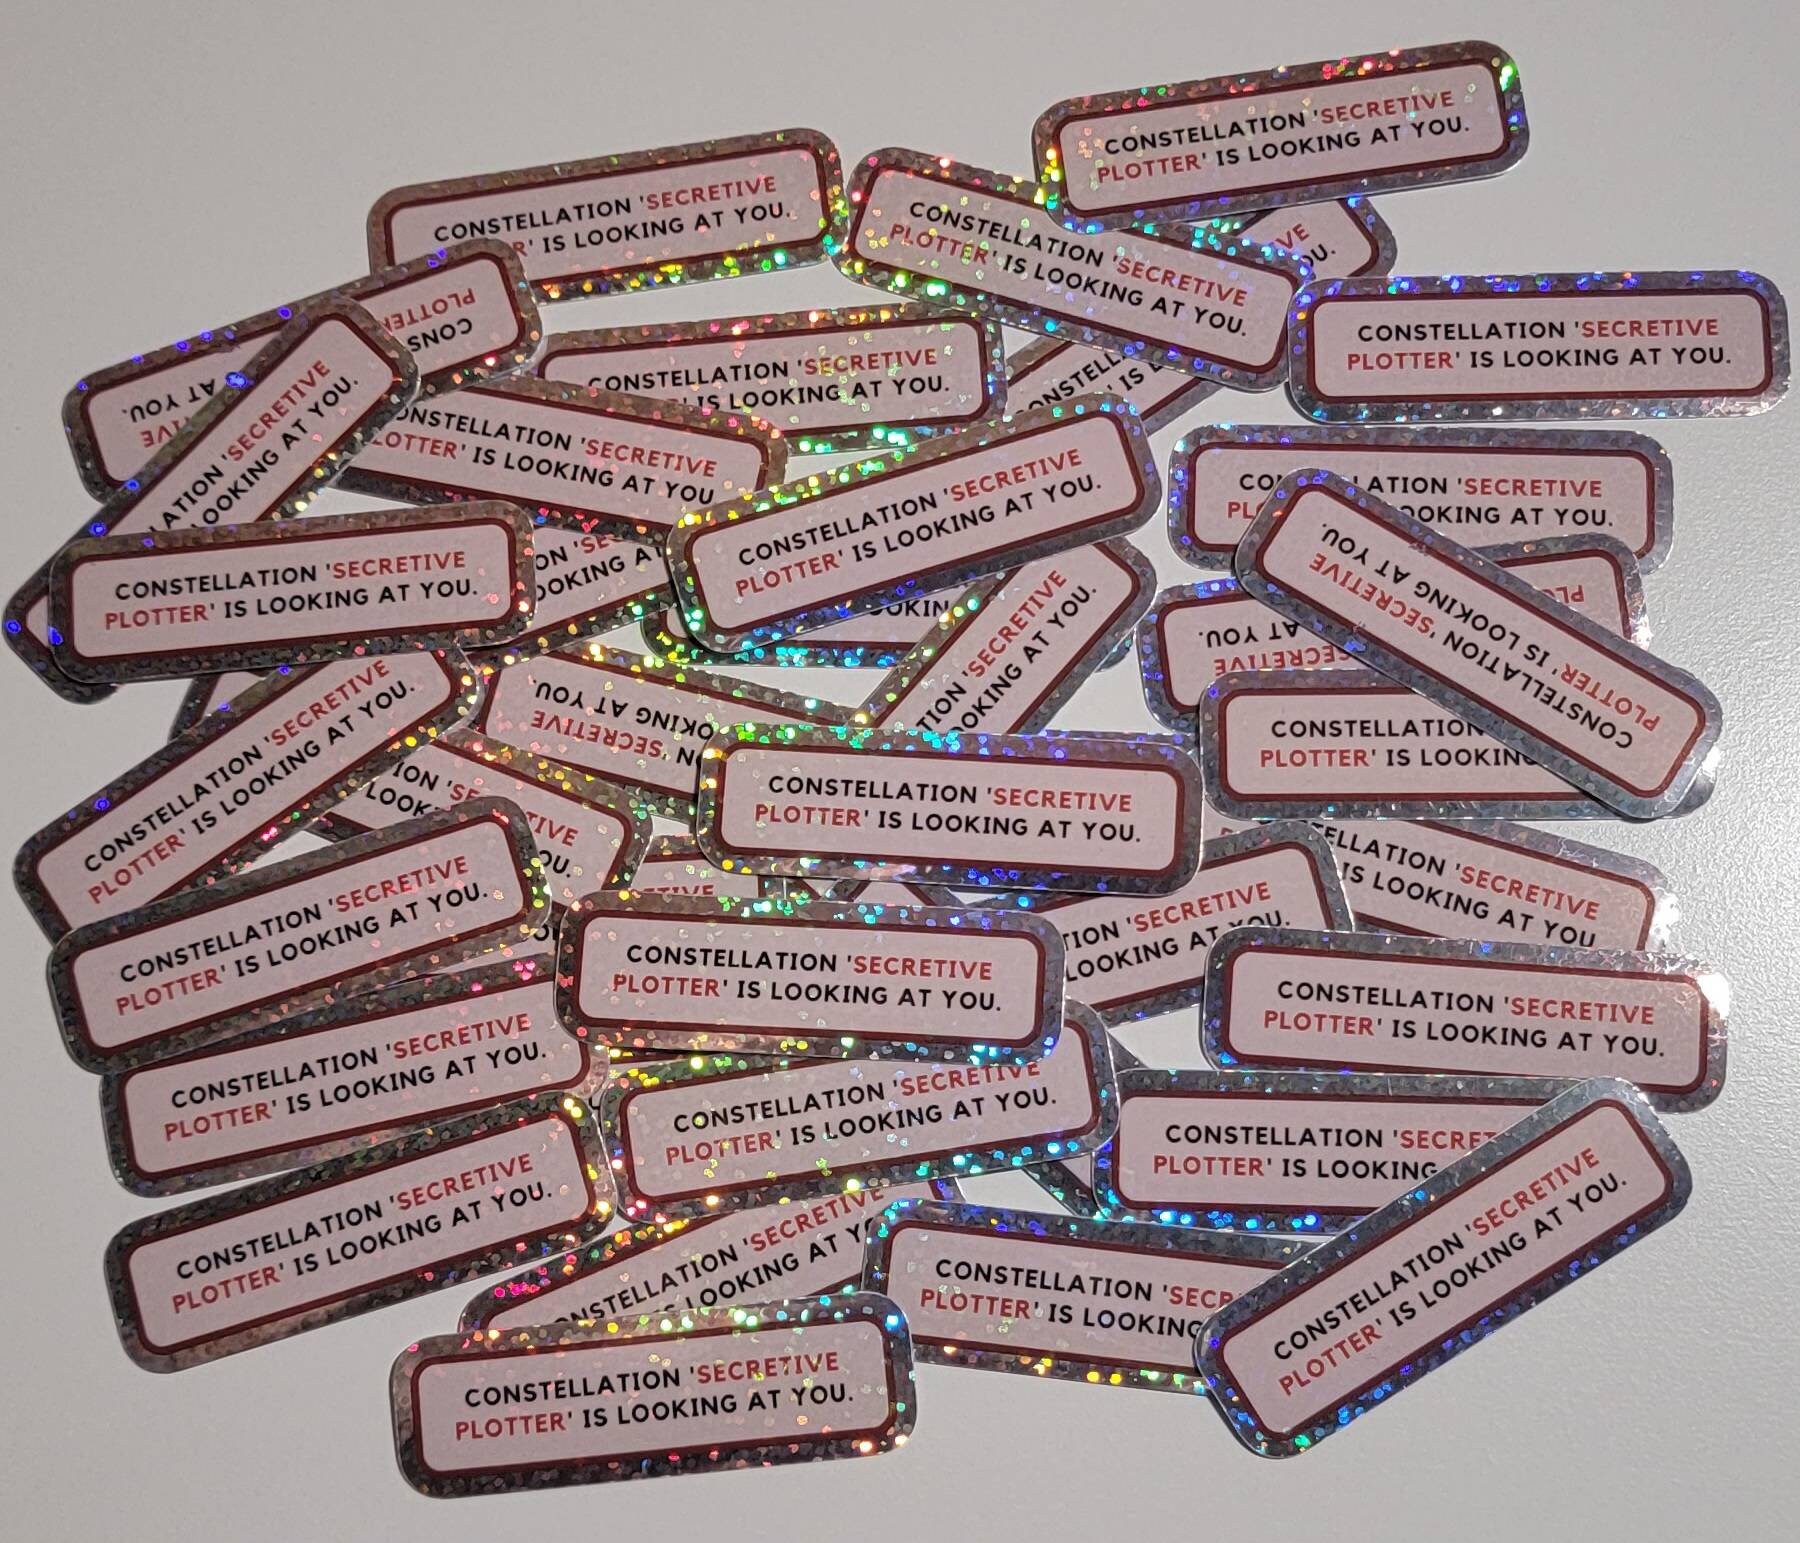 CONSTELLATION 'SECRETIVE
PLOTTER' IS LOOKING AT YOU.
CONSTELLATION 'SECRETIVE
IS LOOKING AT YOU.
CONSTELLATION 'SECRETIVE
PLOTTER' IS LOOKING AT YOU.
CONSTELLATION 'SECRETIVE
PLOTTER' IS LOOKING AT YOU.
PLOTTER
AT YOU.
CONSTELLATION 'SECRETIVE
IS LOOKING AT YOU.
'SECRETIVE
LOOKING AT YOU.
'SECRETIVE
IS LOOKING AT YOU
CONSTELLATION 'SECRETIVE
PLOTTER' IS LOOKING AT YOU.
'SECRETIVE
AT YOU.
CONSTELLATION 'SECRETIVE
PLOTTER' IS LOOKING AT YOU.
CONSTELLATION 'SECRETIVE
PLOTTER' IS LOOKING AT YOU.
'SECRETIVE
AT YOU.
SECRETIVE
AT YOU.
CONSTELLATION 'SECRETIVE
PLOTTER' IS LOOKING AT YOU.
'SECRETIVE
AT YOU.
CONSTELLATION
PLOTTER' IS LOOKING
CONSTELLATION 'SECRETIVE
PLOTTER' IS LOOKING AT YOU.
CONSTELLATION 'SECRETIVE
PLOTTER' IS LOOKING AT YOU.
'SECRETIVE
IS LOOKING AT YOU
CONSTELLATION 'SECRETIVE
PLOTTER' IS LOOKING AT YOU.
'SECRETIVE
LOOKING AT YOU.
CONSTELLATION 'SECRETIVE
PLOTTER' IS LOOKING AT YOU.
CONSTELLATION 'SECRETIVE
PLOTTER' IS LOOKING AT YOU.
CONSTELLATION 'SECRETIVE
PLOTTER' IS LOOKING AT YOU.
CONSTELLATION 'SECRETIVE
PLOTTER' IS LOOKING AT YOU.
CONSTELLATION
PLOTTER' IS LOOKING
CONSTELLATION 'SECRETIVE
PLOTTER' IS LOOKING AT YOU.
'SECRETIVE
LOOKING AT
CONSTELLATION
PLOTTER' IS LOOKING
CONSTELLATION 'SECRETIVE
PLOTTER' IS LOOKING AT YOU.
CONSTELLATION 'SECRETIVE
PLOTTER' IS LOOKING AT YOU.